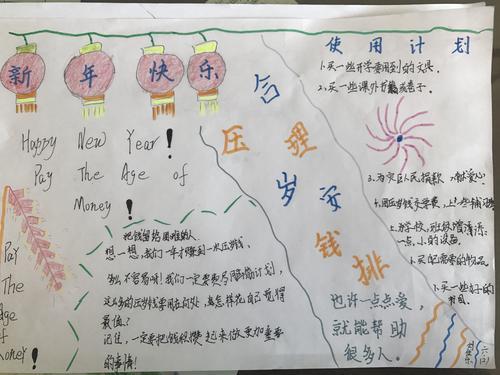 新年快乐
Happy New Year!
Pay The Age of
Money!
Pay
The
Age
of
Money!
把钱留给困难的人.
想一想,我们一年才赚到一次压岁钱,
多么不容易呀!我们一定要
计划,
这么多的压岁钱要用在何处,怎样花自己觉得
最值.?
记住,一定要把钱积攒起来做更加重要
的事情!
合理安排
压岁钱
使用计划
1.买一些开学要用到的文具.
2.买一些课外
3.为灾区人民捐款,献爱心.
4.用压岁钱交学费,上一些辅
5.为学校,班级增添
一点小的设施.
6.买自己需要的物品.
7.买一些
也许一点点爱,
就能帮助
很多人.
六(2)